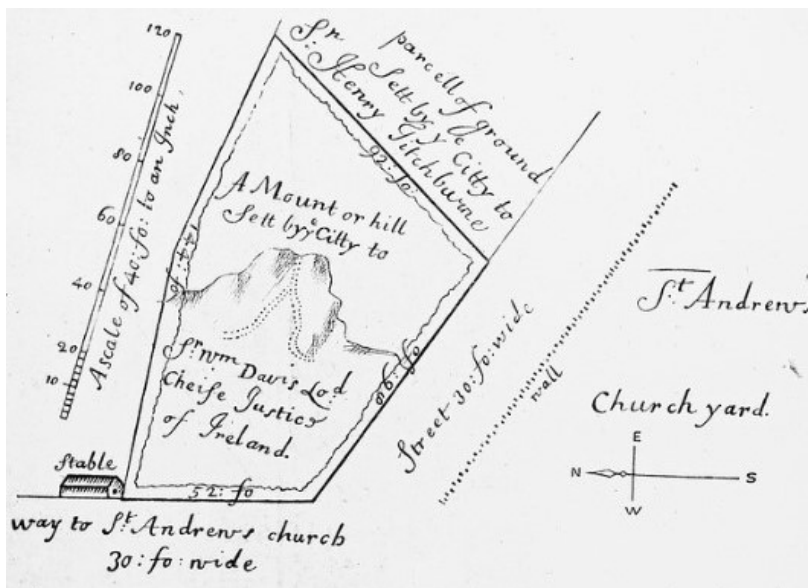 120
100
80
60
40
20
10
A scale of 40: fo: to an Inch,
parcell of ground
Sett by yᵉ Citty to
Sʳ Henry Titchburne
92: fo:
A Mount or hill
Sett by yᵉ Citty to
144: fo
Sʳ Wm Davis Lod
Cheife Justice
of Ireland.
96: fo
Street 30: fo: wide
wall
Sᵗ Andrews
Church yard.
E
N
S
W
Stable
52: fo
way to Sᵗ Andrews church
30: fo: wide